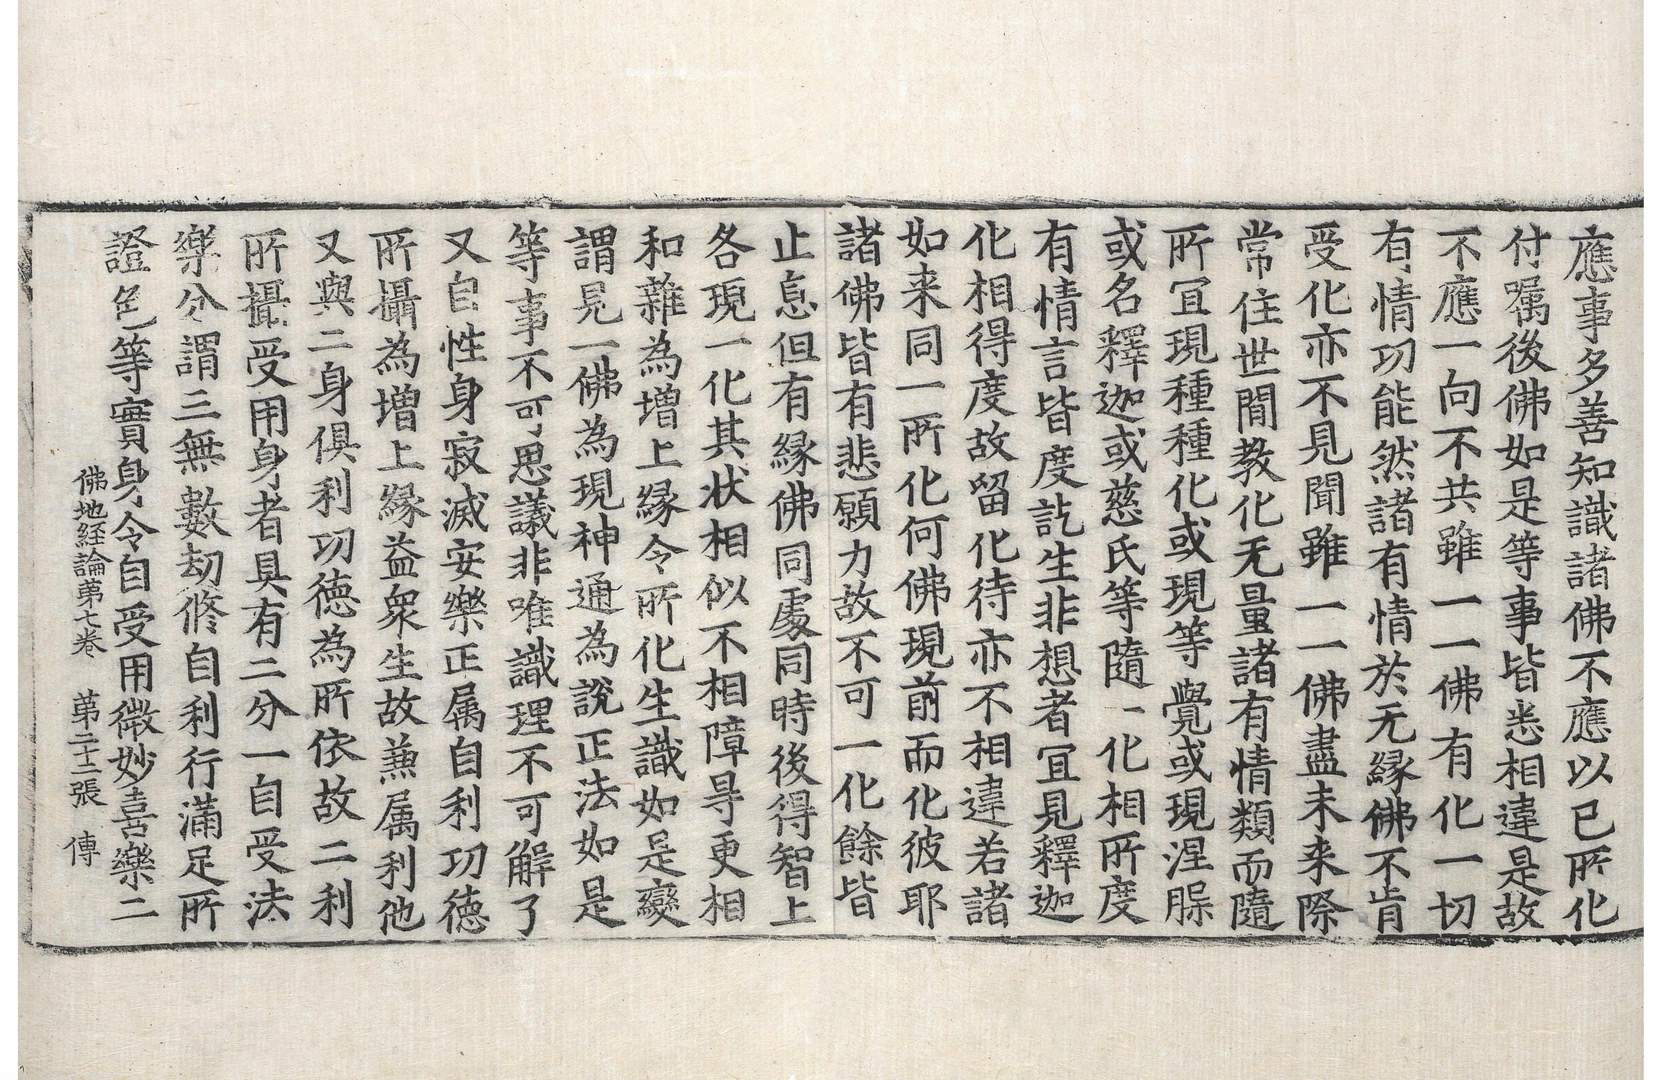 應事多善知識諸佛不應以已所化
付嘱後佛如是等事皆悉相違是故
不應一向不共雖一一佛有化一切
有情功能然諸有情於无緣佛不肯
受化亦不見聞雖一一佛盡未来際
常住世間教化无量諸有情類而隨
所冝現種種化或現等覺或現涅䏶
或名釋迦或慈氏等隨一化相所度
有情言皆度訖生非想者冝見釋迦
化相得度故留化待亦不相違若諸
如来同一所化何佛現前而化彼耶
諸佛皆有悲願力故不可一化餘皆
止息但有緣佛同處同時後得智上
各現一化其狀相似不相障㝵更相
和雜為增上緣令所化生識如是變
謂見一佛為現神通為說正法如是
等事不可思議非唯識理不可解了
又自性身寂滅安樂正属自利功德
所攝為增上緣益衆生故兼属利他
又與二身俱利功德為所依故二利
所攝受用身者具有二分一自受法
樂分謂三無數劫修自利行滿足所
證色等實身令自受用微妙喜樂二
佛地経論第七卷 第二十二張 傳